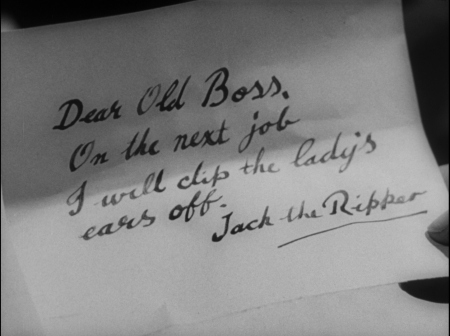 Dear Old Boss,
On the next job
I will clip the lady's
ears off.
Jack the Ripper